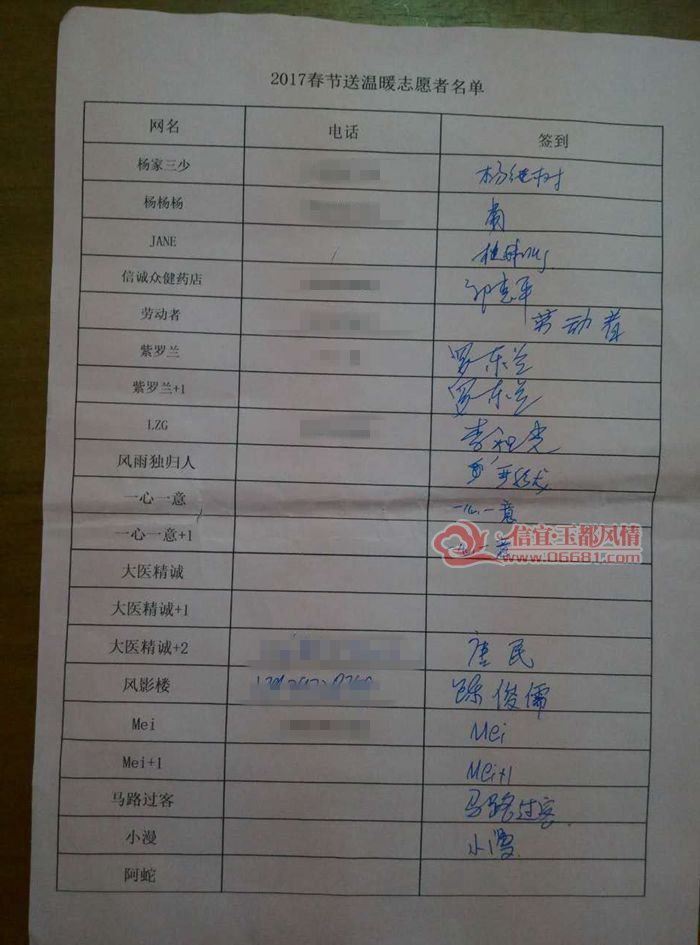 2017春节送温暖志愿者名单
网名 电话 签到
杨家三少 杨继树
杨杨杨
JANE
信诚众健药店
劳动者 劳动者
紫罗兰 罗东兰
紫罗兰+1 罗东兰
LZG
风雨独归人
一心一意 一心一意
一心一意+1 一心一意
信宜·玉都风情
www.06681.com
大医精诚
大医精诚+1
大医精诚+2 唐民
风影楼 陈俊儒
Mei Mei
Mei+1 Mei+1
马路过客 马路过客
小漫 小漫
阿蛇